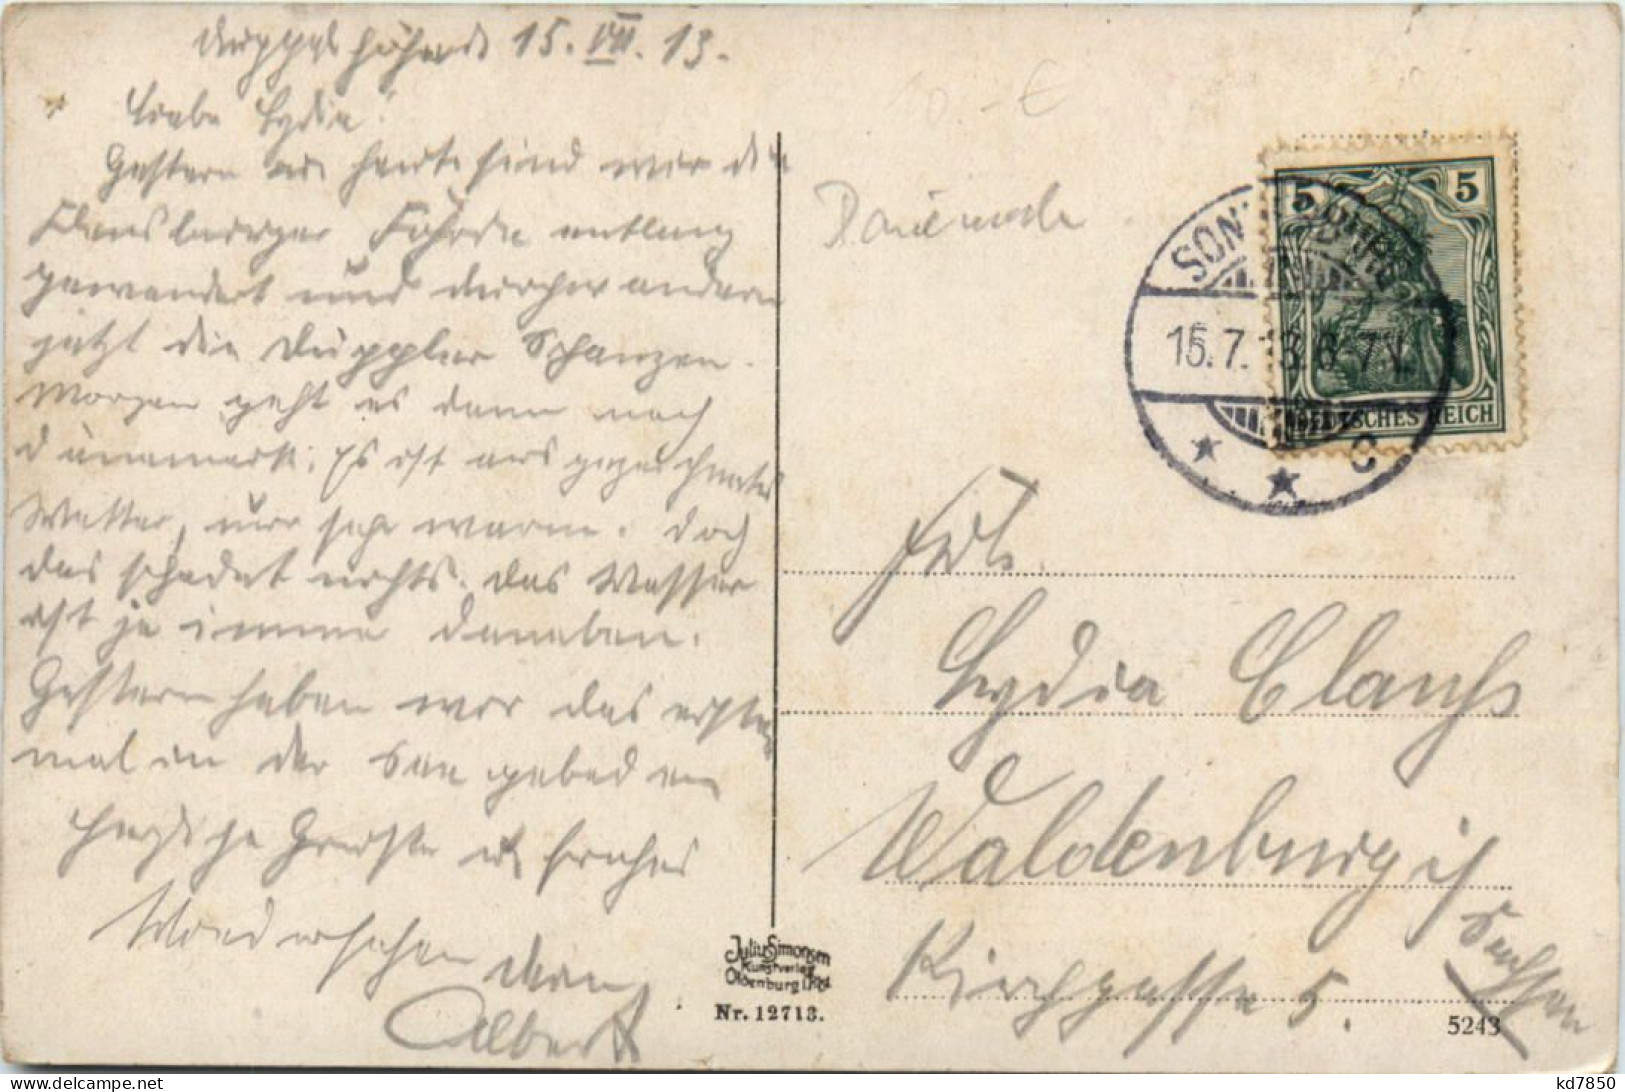 Düppelhöhe d. 15. VII. 13.
Liebe Lydia!
Gestern und heute sind wir die
Flensburger Föhrde entlang
gewandert und durchwandern
jetzt die Düppler Schanzen.
Morgen geht es dann nach
Dänemark. Es ist ausgezeichnetes
Wetter, nur sehr warm. Doch
das schadet nichts. das Wasser
ist ja immer daneben.
Gestern haben wir das erste
mal in der See gebaden
Herzliche Grüsse u. frohes
Wiedersehen dein
Albert
10.-€
Dänemark
SONDERBURG
15.7.13.6-7V.
C
5 5
DEUTSCHES REICH
Frl.
Lydia Clauß
Waldenburg i/
Sachsen
Kirchgasse 5.
Julius Simonsen
Kunstverlag
Oldenburg i. Hol
Nr. 12713.
5243
kd7850